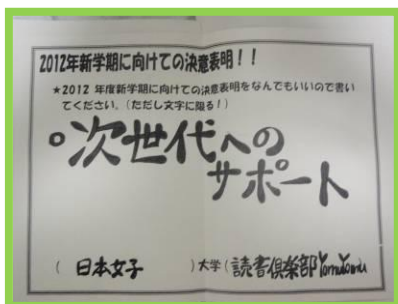 2012年新学期に向けての決意表明！！
★2012 年度新学期に向けての決意表明をなんでもいいので書い
てください。(ただし文字に限る！)
◦次世代への
サポート
( 日本女子 )大学(読書倶楽部YomuYomu